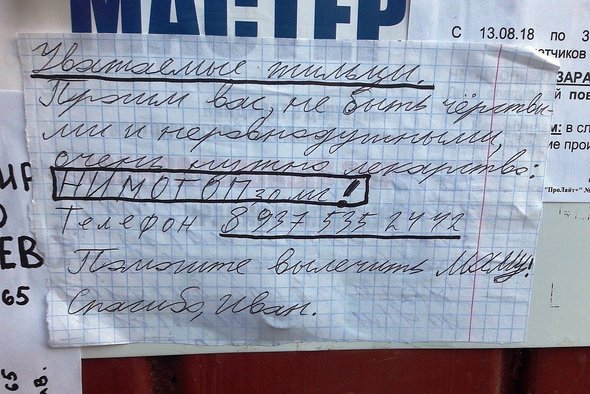 МАСТЕР
С 13.08.18 по 3
отчиков
ЗАРА
й пов
м: в сл
ие прои
"ПроЛайт+" №
Уважаемые жильцы.
Просим вас, не быть чёрствы-
ми и неравнодушными,
очень нужно лекарство:
НИМОТОП 30 мг!
Телефон 8 937 535 24 42
Помогите вылечить маму!
Спасибо, Иван.
ИР
О
ЕВ
65
65
АВ.